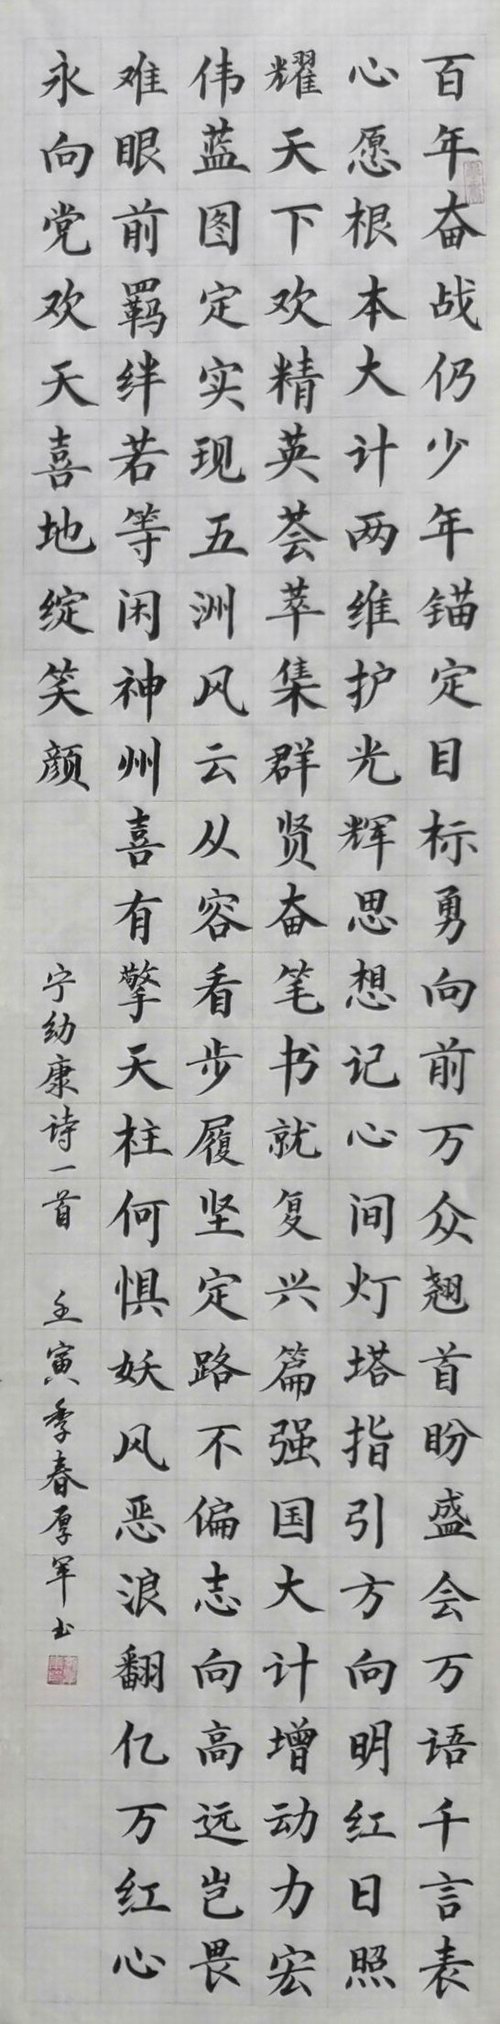 百年奋战仍少年锚定目标勇向前万众翘首盼盛会万语千言表
心愿根本大计两维护光辉思想记心间灯塔指引方向明红日照
耀天下欢精英荟萃集群贤奋笔书就复兴篇强国大计增动力宏
伟蓝图定实现五洲风云从容看步履坚定路不偏志向高远岂畏
难眼前羁绊若等闲神州喜有擎天柱何惧妖风恶浪翻亿万红心
永向党欢天喜地绽笑颜
宁幼康诗一首 壬寅季春厚军书